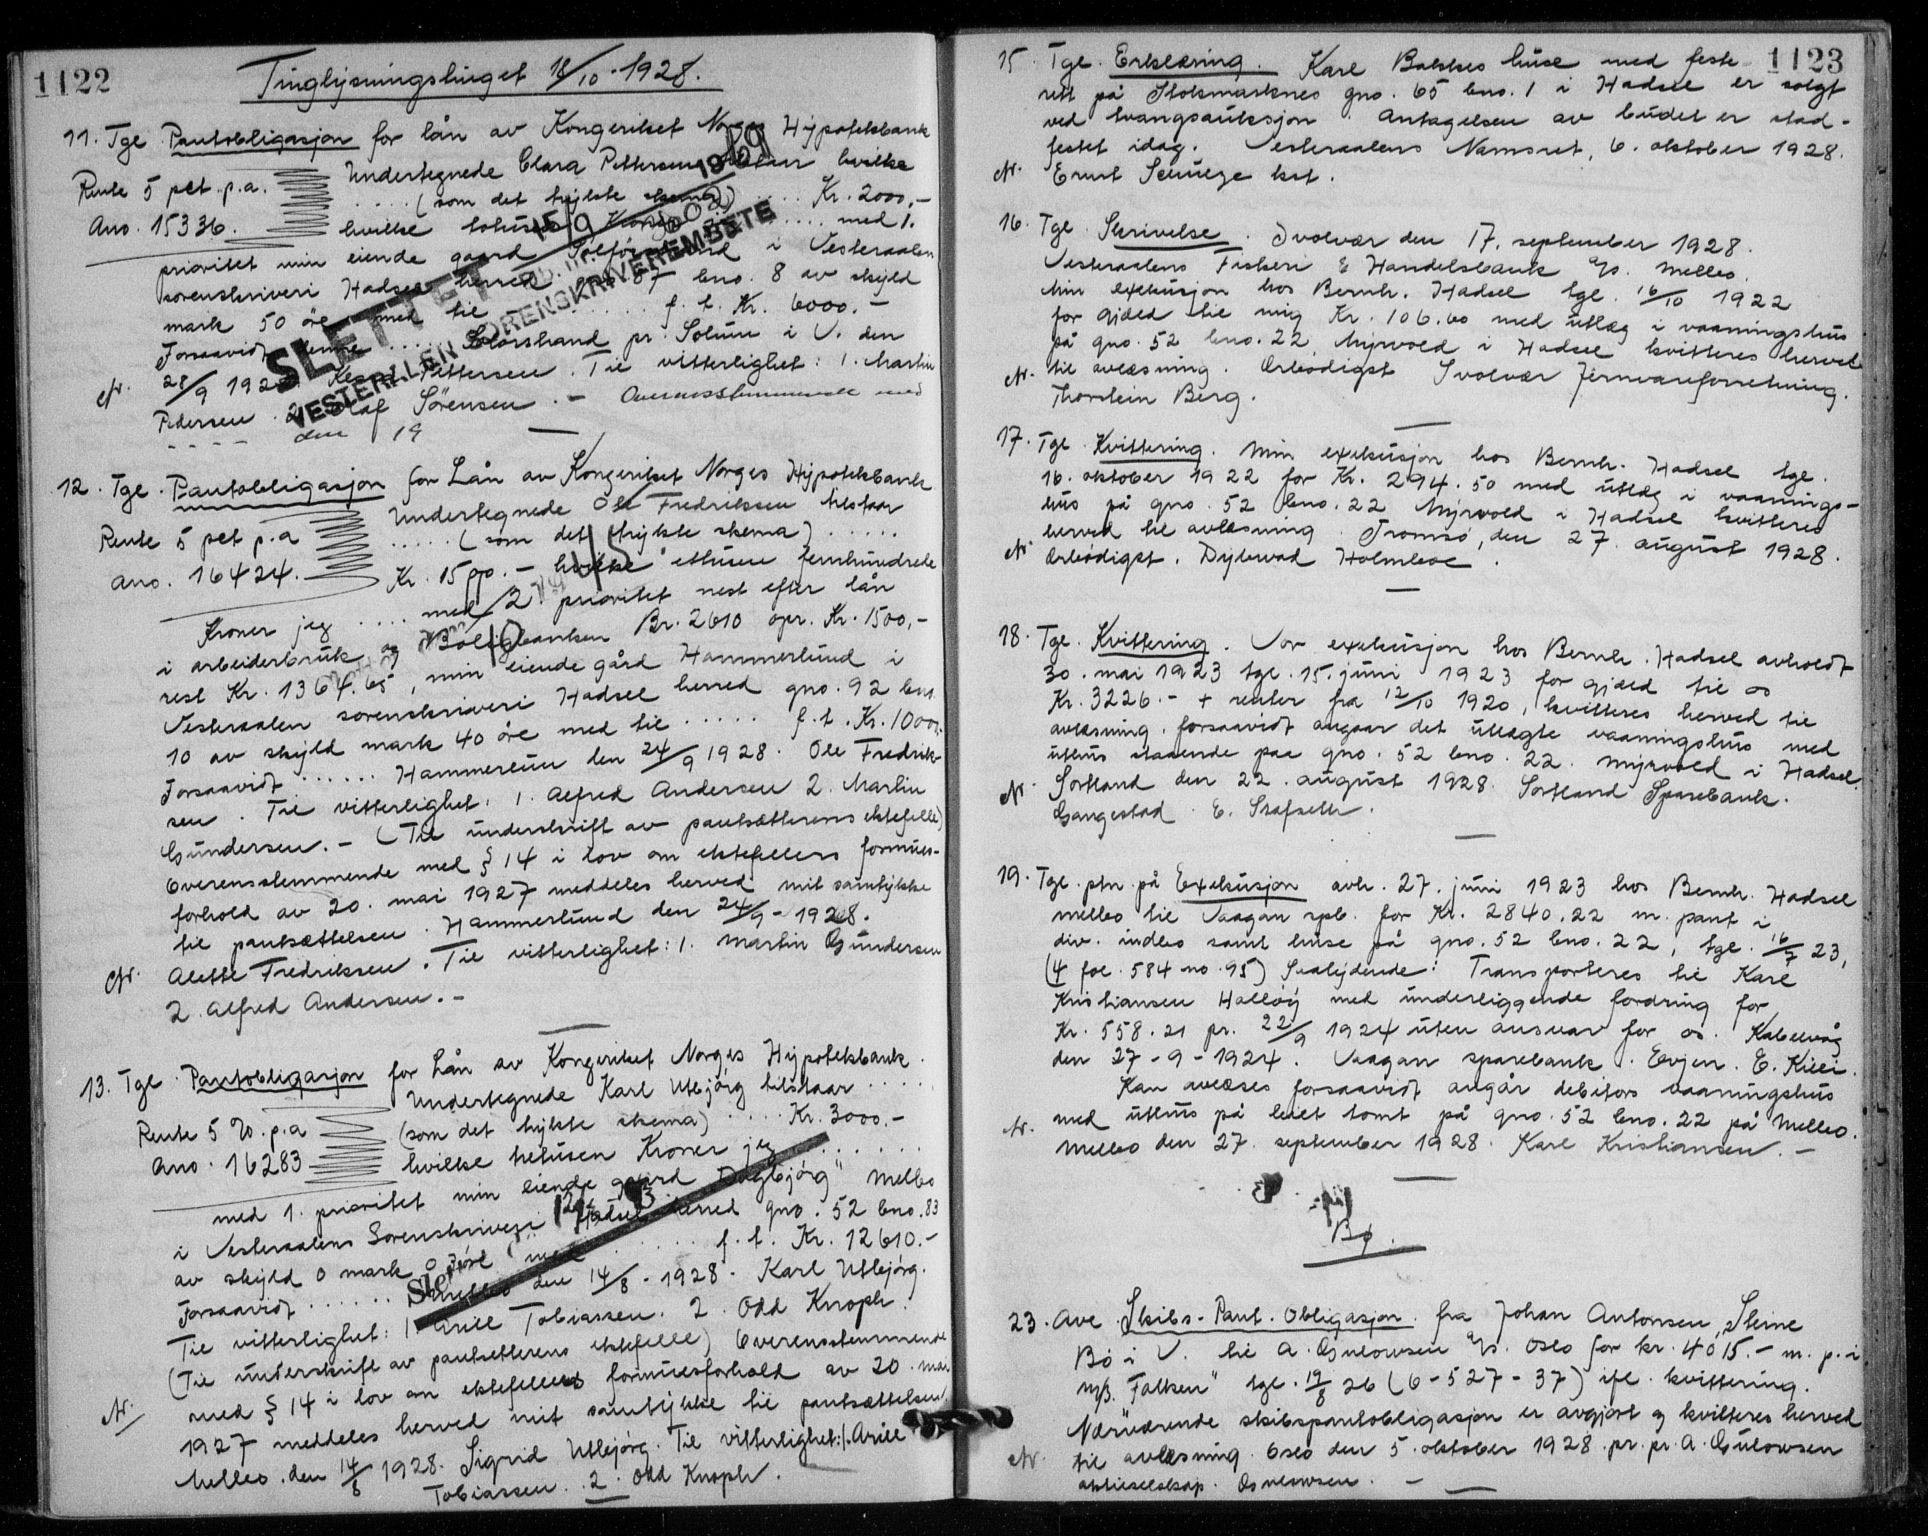 1122
Tinglysningstinget 18/10-1928.
11. Tgl Pantobligasjon for lån av Kongeriket Norges Hypotekbank
Undertegnede Clara Pettersen hvilke
Rente 5 pct. p.a.
.... (som det trykte skema) ... Kr. 2000,-
Ano. 15336.
hvilke totusen Kroner ..... med 1.
prioritet min eiende gaard i Vesteraalen
sorenskriveri Hadsel herred 87 bno. 8 av skyld
mark 50 öre med til ........ f. t. Kr. 6000.-
Forsaavidt .... pr. Solum i V. den
28/9 192 Pettersen. Til vitterlighet: 1. Martin
Pedersen 2. Olaf Sörensen. - Overensstemmende med
- - - - - den 19
SLETTET
15/9 1969
VESTERÅLEN SORENSKRIVEREMBETE
12. Tgl. Pantobligasjon for Lån av Kongeriket Norges Hypotekbank
Undertegnede Ole Fredriksen tilstaar
Rente 5 pct p.a
..... (som det trykte skema) .....
ano. 16424.
Kr. 1500.- hvilke ettusen femhundrede
Kroner jeg .... med 2. prioritet nest efter lån
i arbeiderbruk og Boligbanken Br. 2610 opr. Kr. 1500,-
rest Kr. 1364.65, min eiende gård Hammerlund i
Vesteraalen sorenskriveri Hadsel herred gno. 92 bno.
10 av skyld mark 40 öre med til ..... f. t. Kr. 1000,-
Forsaavidt ...... Hammerlund den 24/9 1928. Ole Fredrik-
sen. Til vitterlighet: 1. Alfred Andersen 2. Martin
Gundersen. - (Til underskrift av pantsætterens ektefelle)
Overensstemmende med § 14 i lov om ektefellers formues-
forhold av 20. mai 1927 meddeles herved mit samtykke
til pantsættelsen. Hammerlund den 24/9-1928.
Alette Fredriksen. Til vitterlighet: 1. Martin Gundersen
2. Alfred Andersen. -
13. Tgl. Pantobligasjon for Lån av Kongeriket Norges Hypotekbank.
Undertegnede Karl Utbjörg tilstaar .....
Rente 5 %. p.a
(som det trykte skema) ..... Kr. 3000.-
ano. 16283
hvilke tretusen Kroner jeg ......
med 1. prioritet min eiende gaard "Dagbjörg" Melbo
i Vesteraalens Sorenskriveri Hadsel herred gno. 52 bno. 83
av skyld 0 mark 0 öre med ....... f. t. Kr. 12610.-
Forsaavidt ...... Melbo den 14/8-1928. Karl Utbjörg.
Til vitterlighet: 1. Arill Tobiassen. 2. Odd Knoph.
(Til underskrift av pantsetterens ektefelle) Overensstemmende
med § 14 i lov om ektefellers formuesforhold av 20. mai
1927 meddeles herved mit samtykke til pantsættelsen.
Melbo. den 14/8 1928. Sigrid Utbjörg. Til vitterlighet: 1. Arill
Tobiassen. 2. Odd Knoph.
1123
15. Tgl. Erklæring. Karl huse med feste-
rett på Stokmarknes gno. 65 bno. 1 i Hadsel er solgt
ved tvangsauksjon. Antagelsen av budet er stad-
festet idag. Vesteraalens Namsret, 6. oktober 1928.
Ernst Schulze kst.
16. Tgl. Skrivelse. Svolvær den 17. september 1928.
Vesteraalens Fiskeri & Handelsbank A/S. Melbo.
Min exekusjon hos Bernh. Hadsel tgl. 16/10 1922
for gjæld til mig Kr. 106.60 med utlæg i vaaningshus
på gno. 52 bno. 22 Myrvold i Hadsel kvitteres herved
til avlæsning. Ærbödigst Svolvær Jernvareforretning.
Thorstein Berg.
17. Tgl. Kvittering. Min exekusjon hos Bernh. Hadsel tgl.
16. oktober 1922 for Kr. 294.50 med utlæg i vaanings-
hus på gno. 52 bno. 22 Myrvold i Hadsel kvitteres
herved til avlæsning. Tromsö, den 27. august 1928.
Ærbödigst. Dybwad Holmboe.
18. Tgl. Kvittering. Vor exekusjon hos Bernh. Hadsel avholdt
30. mai 1923 tgl. 15. juni 1923 for gjæld til os
Kr. 3226.- + renter fra 12/10 1920, kvitteres herved til
avlæsning. forsaavidt angaar det utlagte vaaningshus med
uthus staaende paa gno. 52 bno. 22. Myrvold i Hadsel.
Sortland den 22. august 1928. Sortland Sparebank.
Gangestad E. Stafseth.
19. Tgl. ptn. på Exekusjon avh. 27. juni 1923 hos Bernh. Hadsel
Melbo til Vaagan spb. for Kr. 2840.22 m. pant i
div. indbo samt huse på gno. 52 bno. 22, tgl. 16/7 23,
(4 fol. 584 no. 95) Saalydende: Transporteres til Karl
Kristiansen Hallöy med underliggende fordring for
Kr. 558.21 pr. 22/9 1924 uten ansvar for os. Kabelvåg
den 27-9-1924. Vaagan sparebank. Evjen. E. Kiil.
Kan avlæses forsaavidt angår debitors vaaningshus
med uthus på leiet tomt på gno. 52 bno. 22 på Melbo.
Melbo den 27. september 1928. Karl Kristiansen. -
Bø.
23. Avl. Skibs-Pant-Obligasjon fra Johan Antonsen, Steine
Bö i V. til A. Gulowsen A/S. Oslo for kr. 4015.- m. p. i
M/B. "Falken" tgl. 19/8 26 (6-527-37) ifl. kvittering.
Nærværende skibspantobligasjon er avgjort og kvitteres herved
til avlæsning. Oslo den 5. oktober 1928. pr. pr. A. Gulowsen
aktieselskap. Gulowsen. -